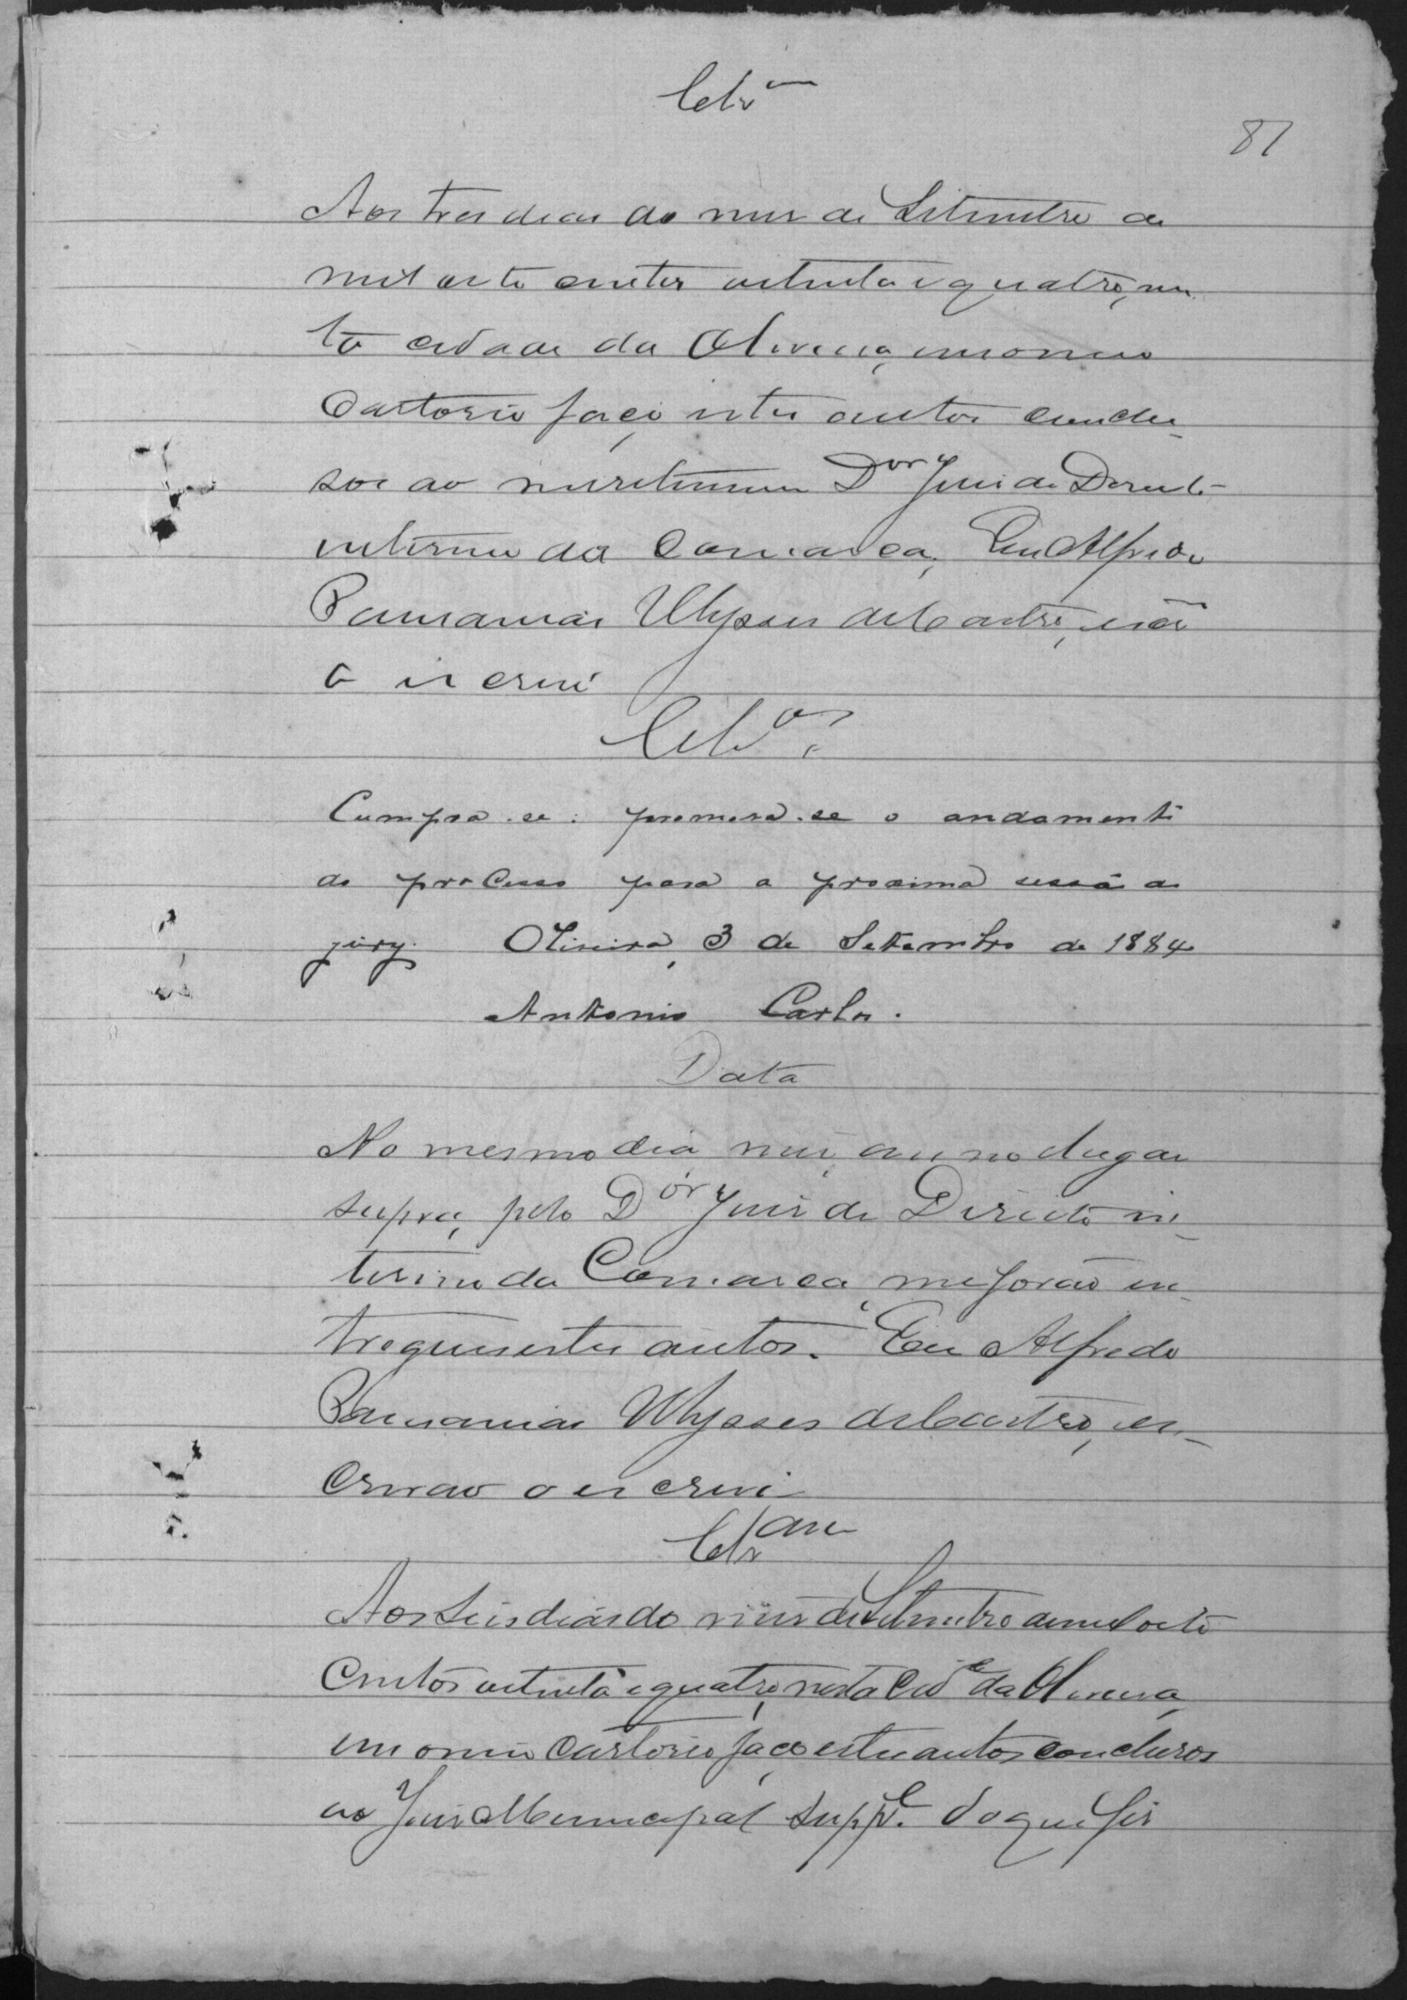 Clsm
87
Aos tres dias do mes de Setembro de
mil oito centos oitenta e quatro, nes
ta cidade da Oliveira, em o meu
Cartorio faço estes autos conclu-
sos ao meretissimo Dor Juis de Direito
interino da Comarca, Eu Alfredo
Pausanias Ulysses de Castro, escrão
o escrevi
Clsos
Cumpra-se: promova-se o andamento
do processo para a proxima sessão do
jury. Oliveira, 3 de Setembro de 1884
Antonio Carlos.
Data
No mesmo dia, mes, anno e lugar
supra, pelo Dor Juis de Direito in-
terino da Comarca, me forão en-
tregues estes autos. Eu Alfredo
Pausanias Ulysses de Castro, es-
crivão o escrevi
Clsam
Aos seis dias do mes de Setembro de mil oito
centos oitenta e quatro, nesta Cide da Oliveira,
em o meu Cartorio faço estes autos conclusos
ao Juis Municipal suppe. do que fis